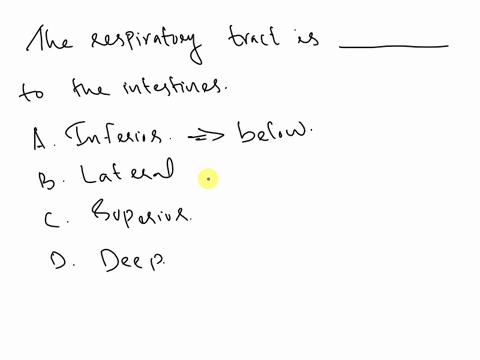 The respiratory tract is ________
to the intestines.
A. Inferior. => below.
B. Lateral
C. Superior.
D. Deep.